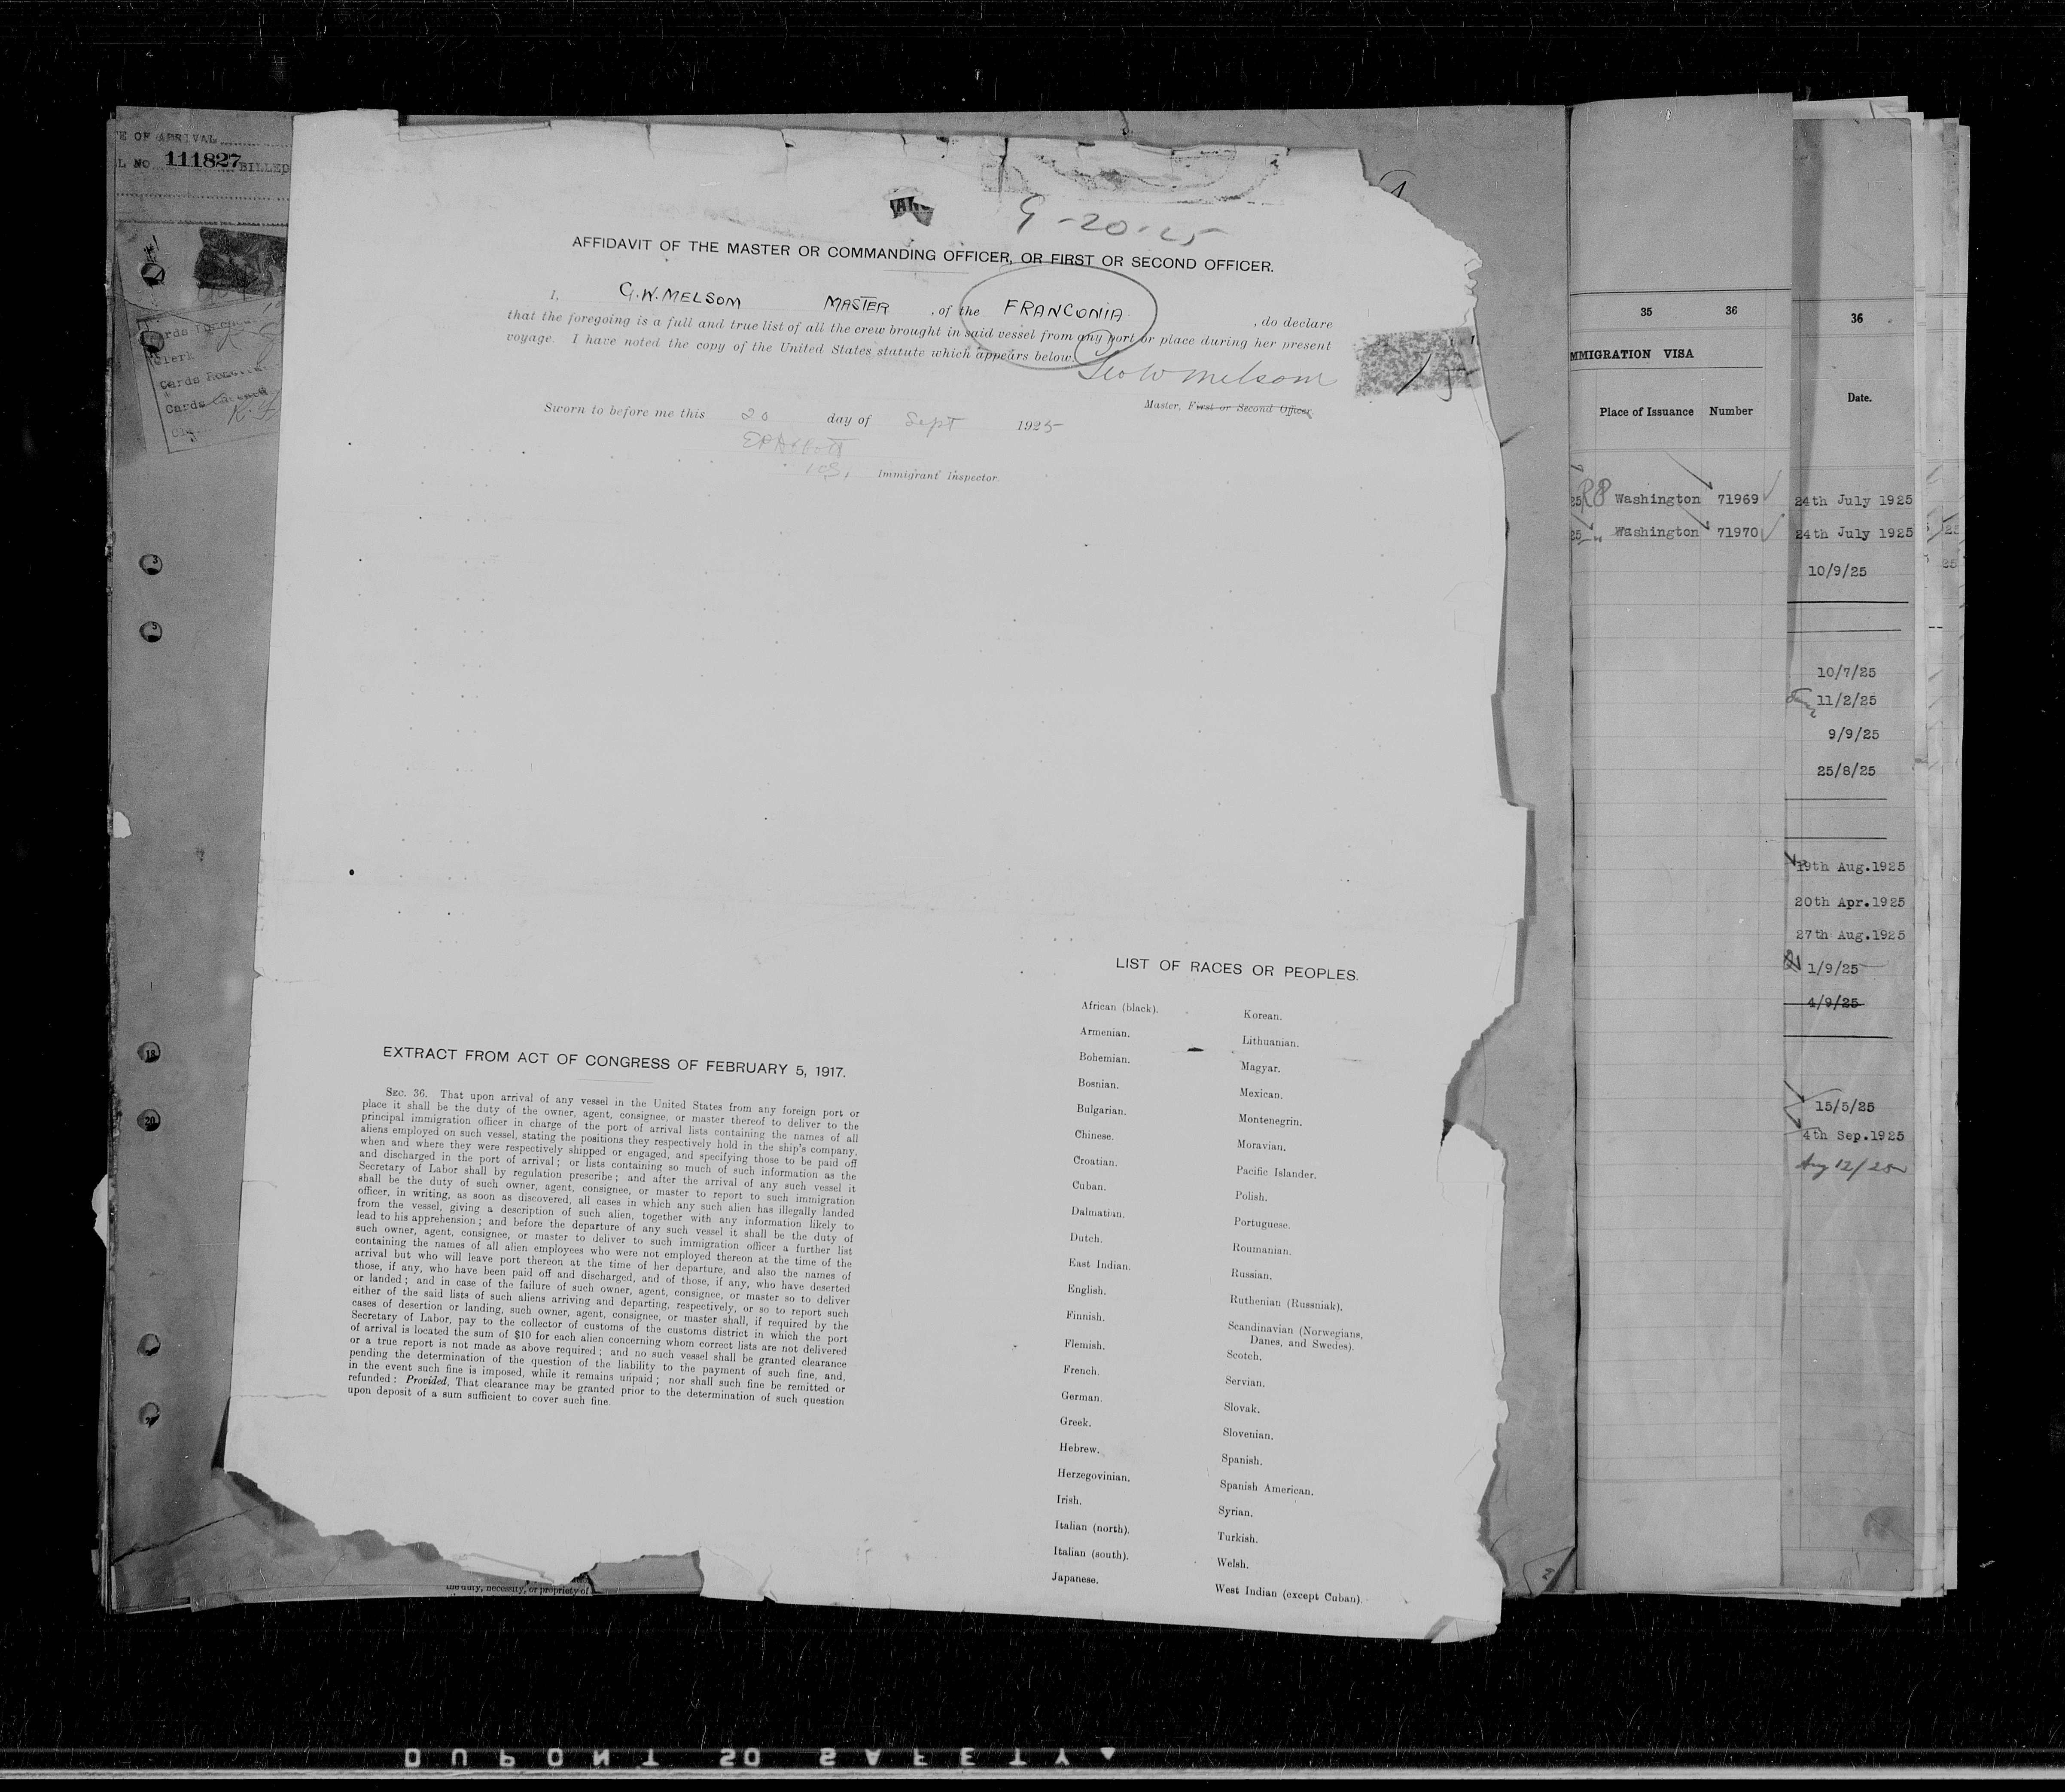 E OF ARRIVAL
L NO. 111827 BILLED
Clerk
9-20-25
AFFIDAVIT OF THE MASTER OR COMMANDING OFFICER, OR FIRST OR SECOND OFFICER.
I, G.W. MELSOM MASTER, of the FRANCONIA, do declare
that the foregoing is a full and true list of all the crew brought in said vessel from any port or place during her present
voyage. I have noted the copy of the United States statute which appears below.
Geo W Melsom
Master, First or Second Officer.
Sworn to before me this 20 day of Sept 1925
E P Abbott
Immigrant Inspector.
EXTRACT FROM ACT OF CONGRESS OF FEBRUARY 5, 1917.
SEC. 36. That upon arrival of any vessel in the United States from any foreign port or
place it shall be the duty of the owner, agent, consignee, or master thereof to deliver to the
principal immigration officer in charge of the port of arrival lists containing the names of all
aliens employed on such vessel, stating the positions they respectively hold in the ship's company,
when and where they were respectively shipped or engaged, and specifying those to be paid off
and discharged in the port of arrival; or lists containing so much of such information as the
Secretary of Labor shall by regulation prescribe; and after the arrival of any such vessel it
shall be the duty of such owner, agent, consignee, or master to report to such immigration
officer, in writing, as soon as discovered, all cases in which any such alien has illegally landed
from the vessel, giving a description of such alien, together with any information likely to
lead to his apprehension; and before the departure of any such vessel it shall be the duty of
such owner, agent, consignee, or master to deliver to such immigration officer a further list
containing the names of all alien employees who were not employed thereon at the time of the
arrival but who will leave port thereon at the time of her departure, and also the names of
those, if any, who have been paid off and discharged, and of those, if any, who have deserted
or landed; and in case of the failure of such owner, agent, consignee, or master so to deliver
either of the said lists of such aliens arriving and departing, respectively, or so to report such
cases of desertion or landing, such owner, agent, consignee, or master shall, if required by the
Secretary of Labor, pay to the collector of customs of the customs district in which the port
of arrival is located the sum of $10 for each alien concerning whom correct lists are not delivered
or a true report is not made as above required; and no such vessel shall be granted clearance
pending the determination of the question of the liability to the payment of such fine, and,
in the event such fine is imposed, while it remains unpaid; nor shall such fine be remitted or
refunded: Provided, That clearance may be granted prior to the determination of such question
upon deposit of a sum sufficient to cover such fine.
the duty, necessity, or propriety of
LIST OF RACES OR PEOPLES.
African (black).
Armenian.
Bohemian.
Bosnian.
Bulgarian.
Chinese.
Croatian.
Cuban.
Dalmatian.
Dutch.
East Indian.
English.
Finnish.
Flemish.
French.
German.
Greek.
Hebrew.
Herzegovinian.
Irish.
Italian (north).
Italian (south).
Japanese.
Korean.
Lithuanian.
Magyar.
Mexican.
Montenegrin.
Moravian.
Pacific Islander.
Polish.
Portuguese.
Roumanian.
Russian.
Ruthenian (Russniak).
Scandinavian (Norwegians,
Danes, and Swedes).
Scotch.
Servian.
Slovak.
Slovenian.
Spanish.
Spanish American.
Syrian.
Turkish.
Welsh.
West Indian (except Cuban).
35 36
MMIGRATION VISA
Place of Issuance Number
Washington 71969
Washington 71970
36
Date.
24th July 1925
24th July 1925
10/9/25
10/7/25
11/2/25
9/9/25
25/8/25
19th Aug.1925
20th Apr.1925
27th Aug.1925
1/9/25
4/9/25
15/5/25
4th Sep.1925
Aug 12/25
DUPONT SO SAFETY